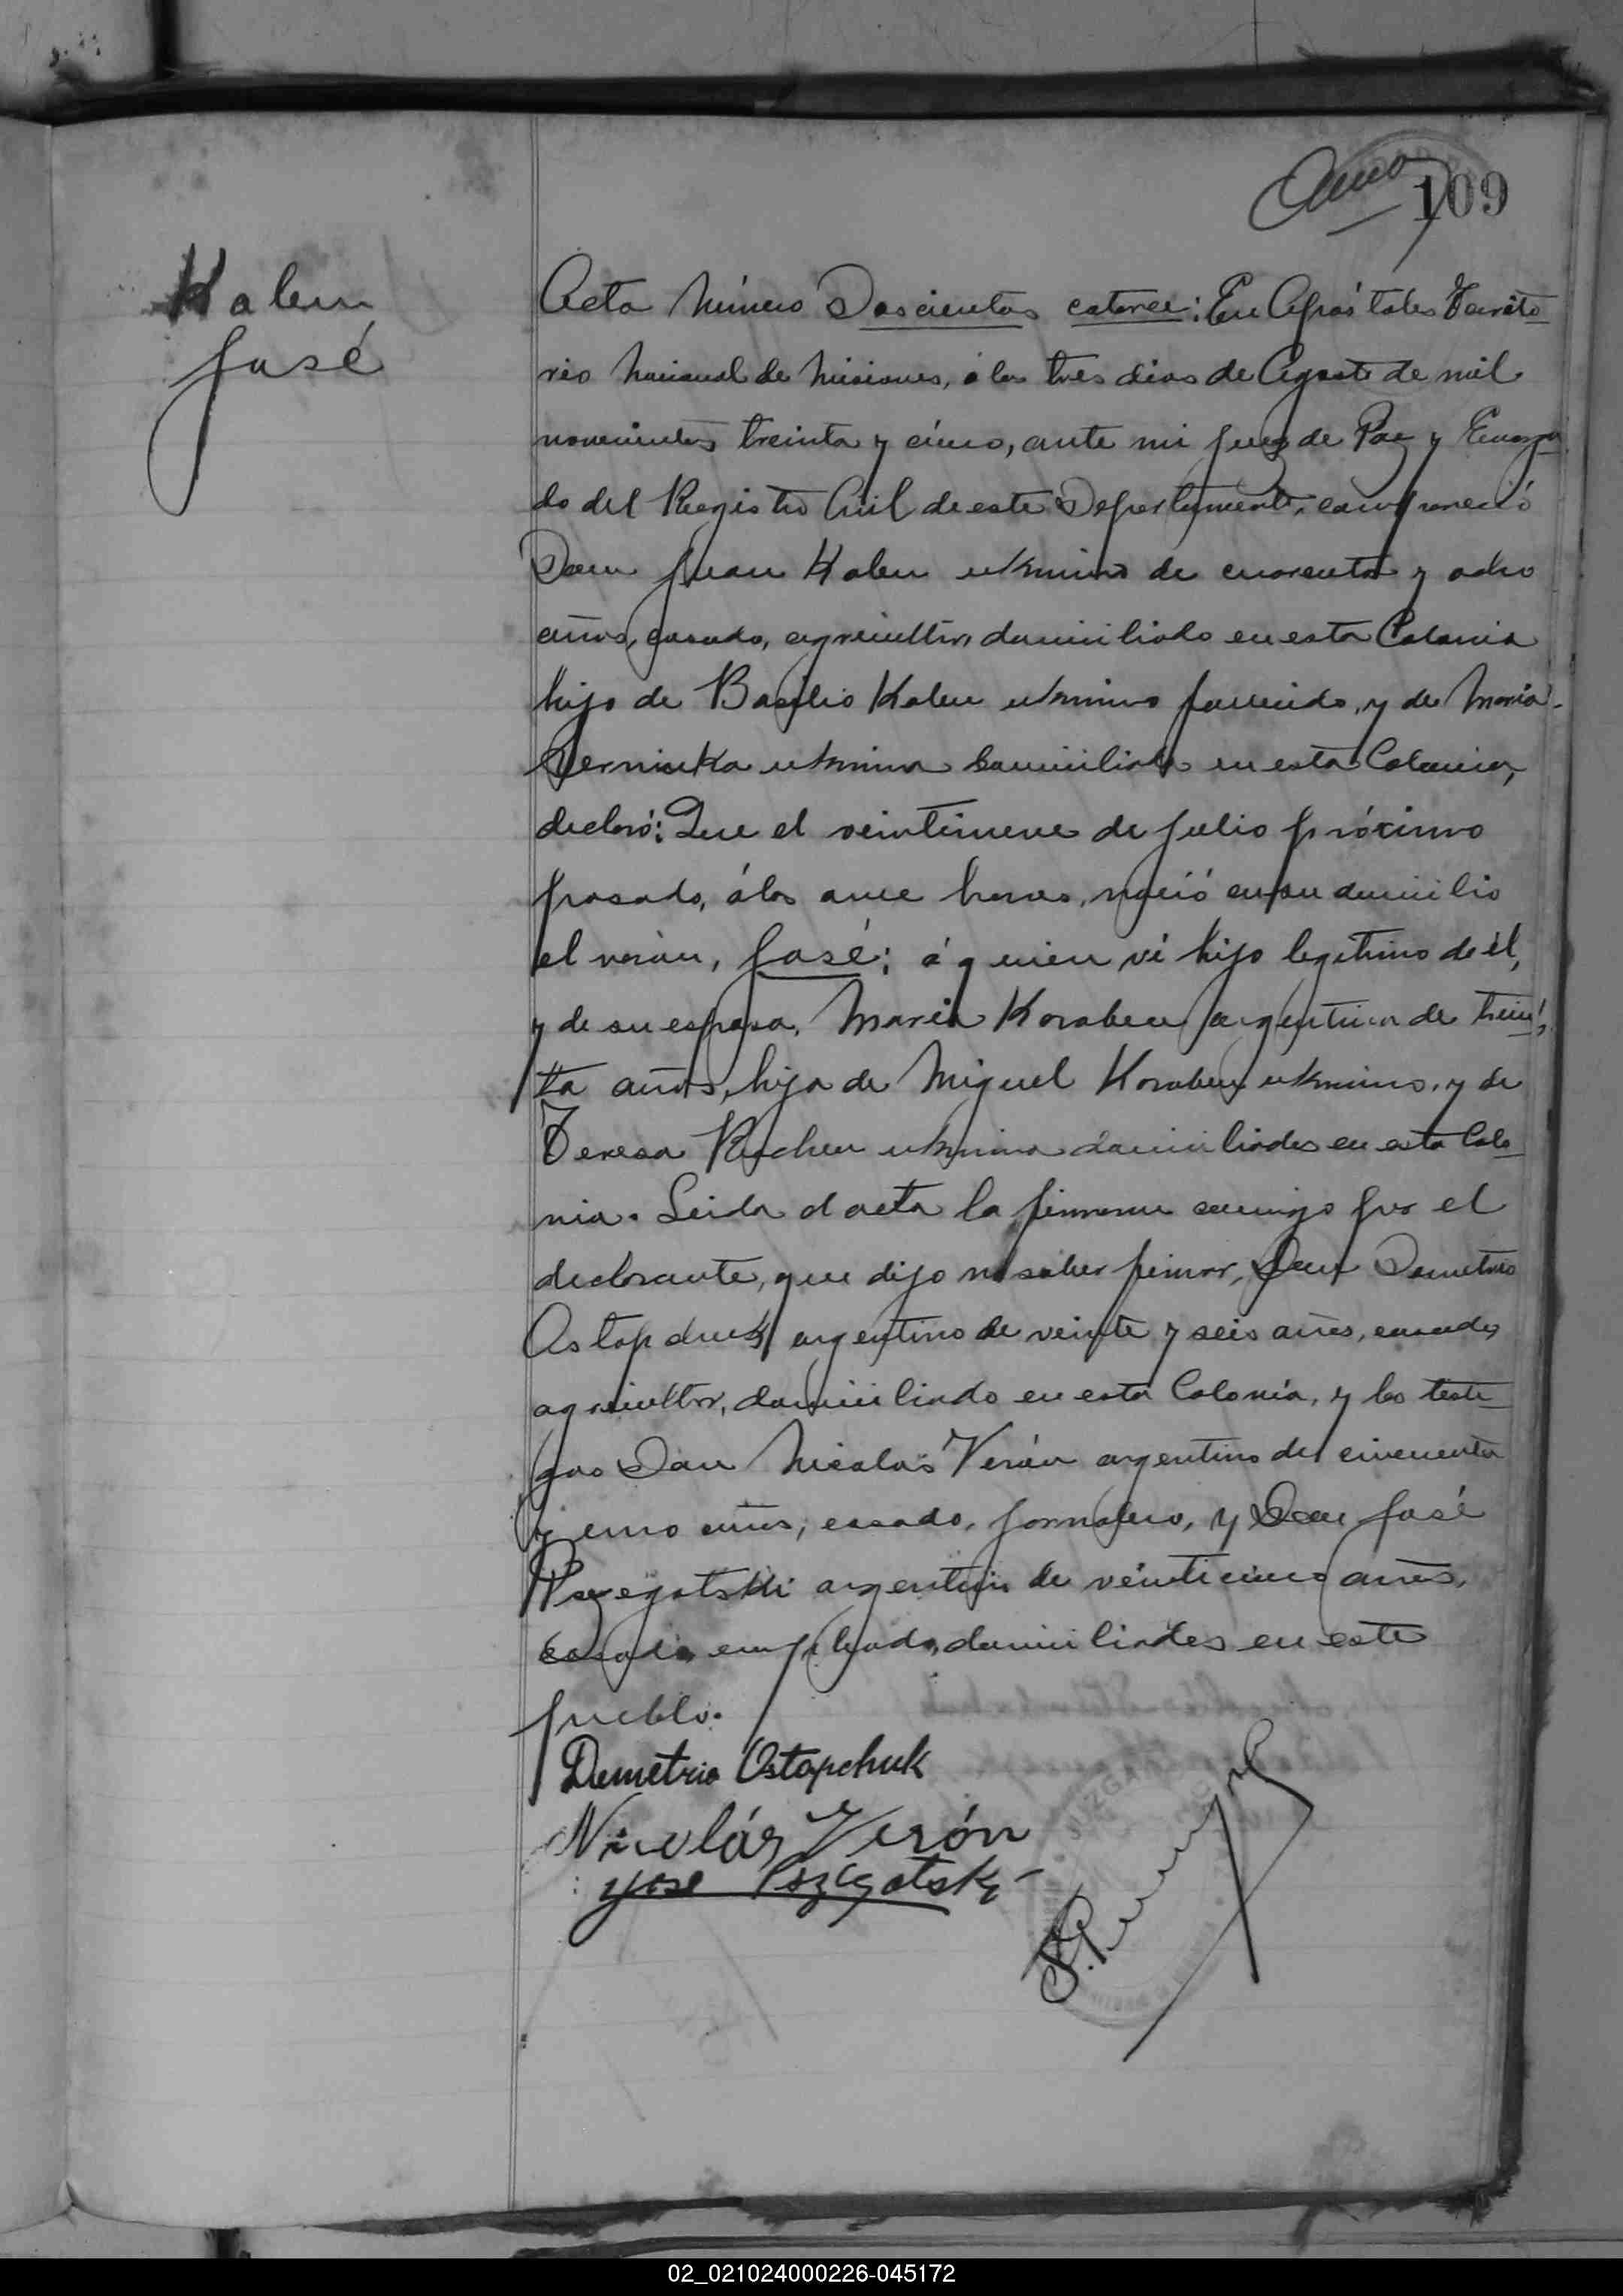 109
Kalen
José
Acta Número Doscientos catorce: En Apóstoles Territo
rio Nacional de Misiones, á los tres dias de Agosto de mil
novecientos treinta y cinco, ante mi Juez de Paz y Encarga
do del Registro Civil de este Departamento, compareció
Don Juan Kalen ukraino de cuarenta y ocho
años, casado, agricultor, domiciliado en esta Colonia
hijo de Basilio Kalen ukraino fallecido, y de Maria
ukraina domiciliada en esta Colonia,
declaró: Que el veintinueve de Julio próximo
pasado, á las once horas, nació en su domicilio
el varón, José; á quien ví hijo legitimo de él,
y de su esposa, Maria Koraben argentina de trein
ta años, hija de Miguel Koraben ukraino, y de
Teresa ukraina domiciliados en esta Colo
nia. Leida el acta la firmaron conmigo por el
declarante, que dijo no saber firmar, Don Demetrio
Ostapchuk argentino de veinte y seis años, casado,
agricultor, domiciliado en esta Colonia, y los testi
gos Don Nicolás Verón argentino de cincuenta
y uno años, casado, jornalero, y Don José
argentino de veinticinco años,
casado, empleado, domiciliados en este
pueblo.
Demetrio Ostapchuk
Nicolás Verón
Jose
02_021024000226-045172